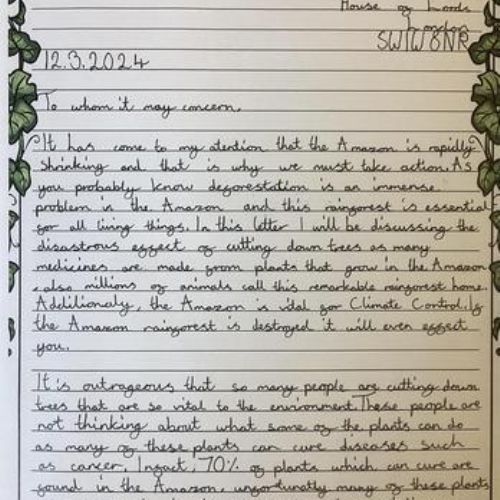 House of Lords
London
SW1W 0NR
12.3.2024
To whom it may concern,
It has come to my atention that the Amazon is rapidly
shrinking and that is why we must take action. As
you probably know deforestation is an immense
problem in the Amazon and this rainforest is essential
for all living things. In this letter I will be discussing the
disastrous effect of cutting down trees as many
medicines are made from plants that grow in the Amazon
, also millions of animals call this remarkable rainforest home.
Addilionaly, the Amazon is vital for Climate Control. If
the Amazon rainforest is destroyed it will even effect
you.
It is outrageous that so many people are cutting down
trees that are so vital to the environment. These people are
not thinking about what some of the plants can do
as many of these plants can cure diseases such
as cancer. Infact, 70% of plants which can cure are
found in the Amazon, unfortunatly many of these plants